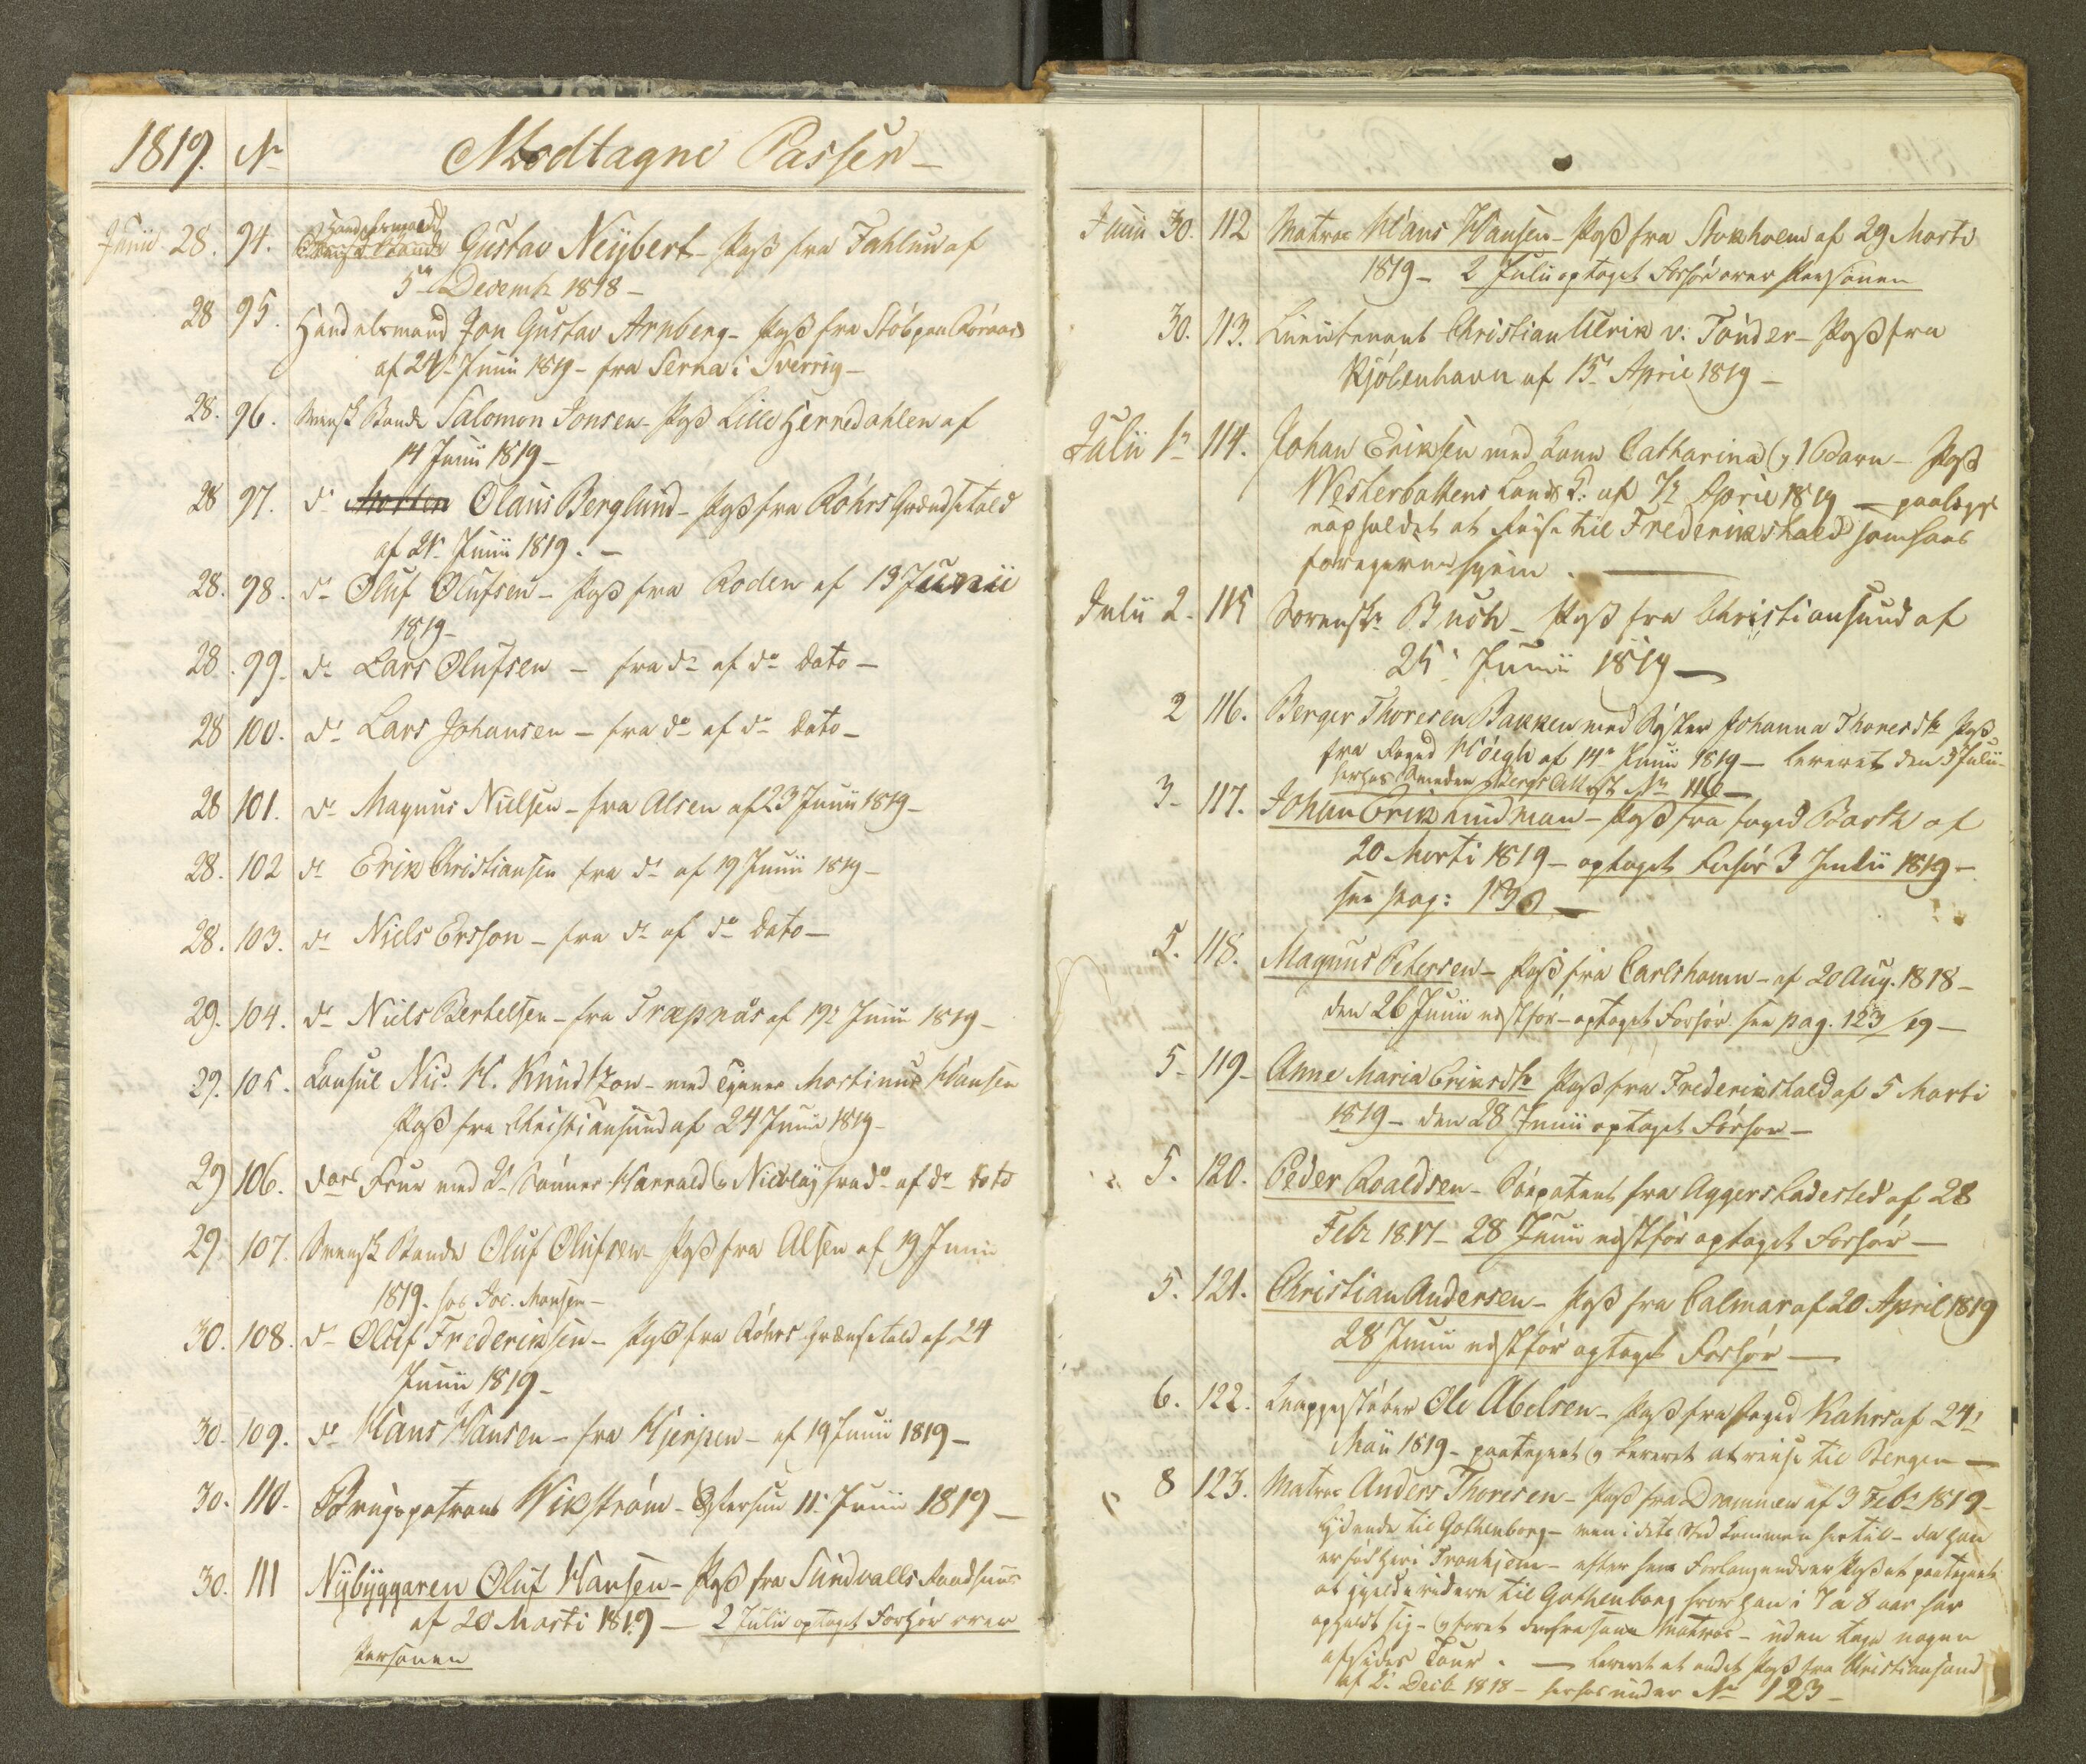 1819. No Modtagne Passer –
Junii 28. 94. Handelsmand Gustav Neijbert – Pass fra Fahlun af
5te Decembr 1818 –
28 95. Handelsmand Jon Gustav Arnberg – Pass fra Röraas
af 24. Junii 1819 – fra Serna i Sverrig –
28. 96. Svensk Bonde Salomon Jonsen – Pass Lille Herredahlen af
14 Junii 1819 –
28 97. do Morten Olaus Berglund – Pass fra Röhrs Grændsetold
af 21. Junii 1819. –
28. 98. do Oluf Olufsen – Pass fra Roden af 13 Junii
1819 –
28. 99. do Lars Olufsen – fra do af do dato –
28 100. do Lars Johansen – fra do af do dato –
28 101. do Magnus Nielsen – fra Alsen af 23 Junii 1819 –
28. 102 do Erik Christiansen fra do af 19 Junii 1819 –
28. 103. do Niels Ersson – fra do af do dato –
29. 104. do Niels Bertelsen – fra Træpnås af 19. Junii 1819 –
29. 105. Consul Nic. H. Knudtzon – med Tjener Martinus Hansen
Pass fra Christiansund af 24 Junii 1819 –
29 106. Frue med 2 Sönner Harrald og Nicolay fra do af do dato
29. 107. Svensk Bonde Oluf Olufsen – Pass fra Alsen af 19 Junii
1819. hos Joc. Monsen –
30. 108. do Oluf Frederiksen – Pass fra Röhrs Grænsetold af 24
Junii 1819 –
30. 109. do Hans Hansen – fra Hjerpen – af 19 Junii 1819 –
30. 110. Brugspatron Wikström – Östersun 11. Junii 1819 –
30. 111 Nybyggaren Oluf Hansen – Pass fra Sundvalls Raadhuus
af 20 Marti 1819 – 2 Julii optaget Forhör over
Personen
Junii 30. 112 Matros Hans Hansen – Pass fra Stokholm af 29 Marti
1819 – 2 Julii optaget Forhör over Personen
30. 113. Lieutenant Christian Ulrik v. Tönder – Pass fra
Kjöbenhavn af 15. April 1819 –
Julii 1. 114. Johan Eriksen med Kone Catharina og 1 Barn – Pass
Westerbottens Land af 7. April 1819 – paalagt
at reise til Frederikshald som hans
foregivne hjem. –
Julii 2. 115 Sorenskr. Buch – Pass fra Christiansund af
25. Junii 1819 –
2 116. Berger Thoresen Bakken med Söster Johanna Thoresdtr Pass
fra Foged Höegh af 14. Junii 1819 – leveret den 3 Julii –
Attest No 116 –
3. 117. Johan Erik Lindman – Pass fra foged Barth af
20 Marti 1819 – optaget Forhör 3 Julii 1819 –
see pag: 130 –
5. 118. Magnus Petersen – Pass fra Carlshamn – af 20 Aug. 1818 –
den 26 Junii nestfor – optaget Forhör see pag. 123/19 –
5. 119. Anne Maria Eriksdtr Pass fra Frederikshald af 5 Marti
1819 – den 28 Junii optaget Forhör –
5. 120. Peder Roaldsen – Söepatent fra Aggers Ladested af 28
Febr 1817 – 28 Junii nestfor optaget Forhör –
5. 121. Christian Andersen – Pass fra Calmar af 20 April 1819
28 Junii nestfor optaget Forhör –
6. 122. Knappestöber Ole Abelsen – Pass fra foged Kahrs af 24.
Maii 1819 – paategnet og leveret at reise til Bergen –
8 123. Matros Anders Thoresen – Pass fra Drammen af 3 Febr 1819 –
lydende til Gothenborg – men i dets Sted kommen hertil – da han
er född her i Tronhjem – efter hans Forlangende er Passet paategnet
at gjelde videre til Gothenborg hvor han i 7 a 8 aar har
opholdt sig – og faret derfra som Matros – uden tage nogen
afsides Tour. – leveret et andet Pass fra Christiansund
af 2. Decbr 1818 – herhos under No 123 –